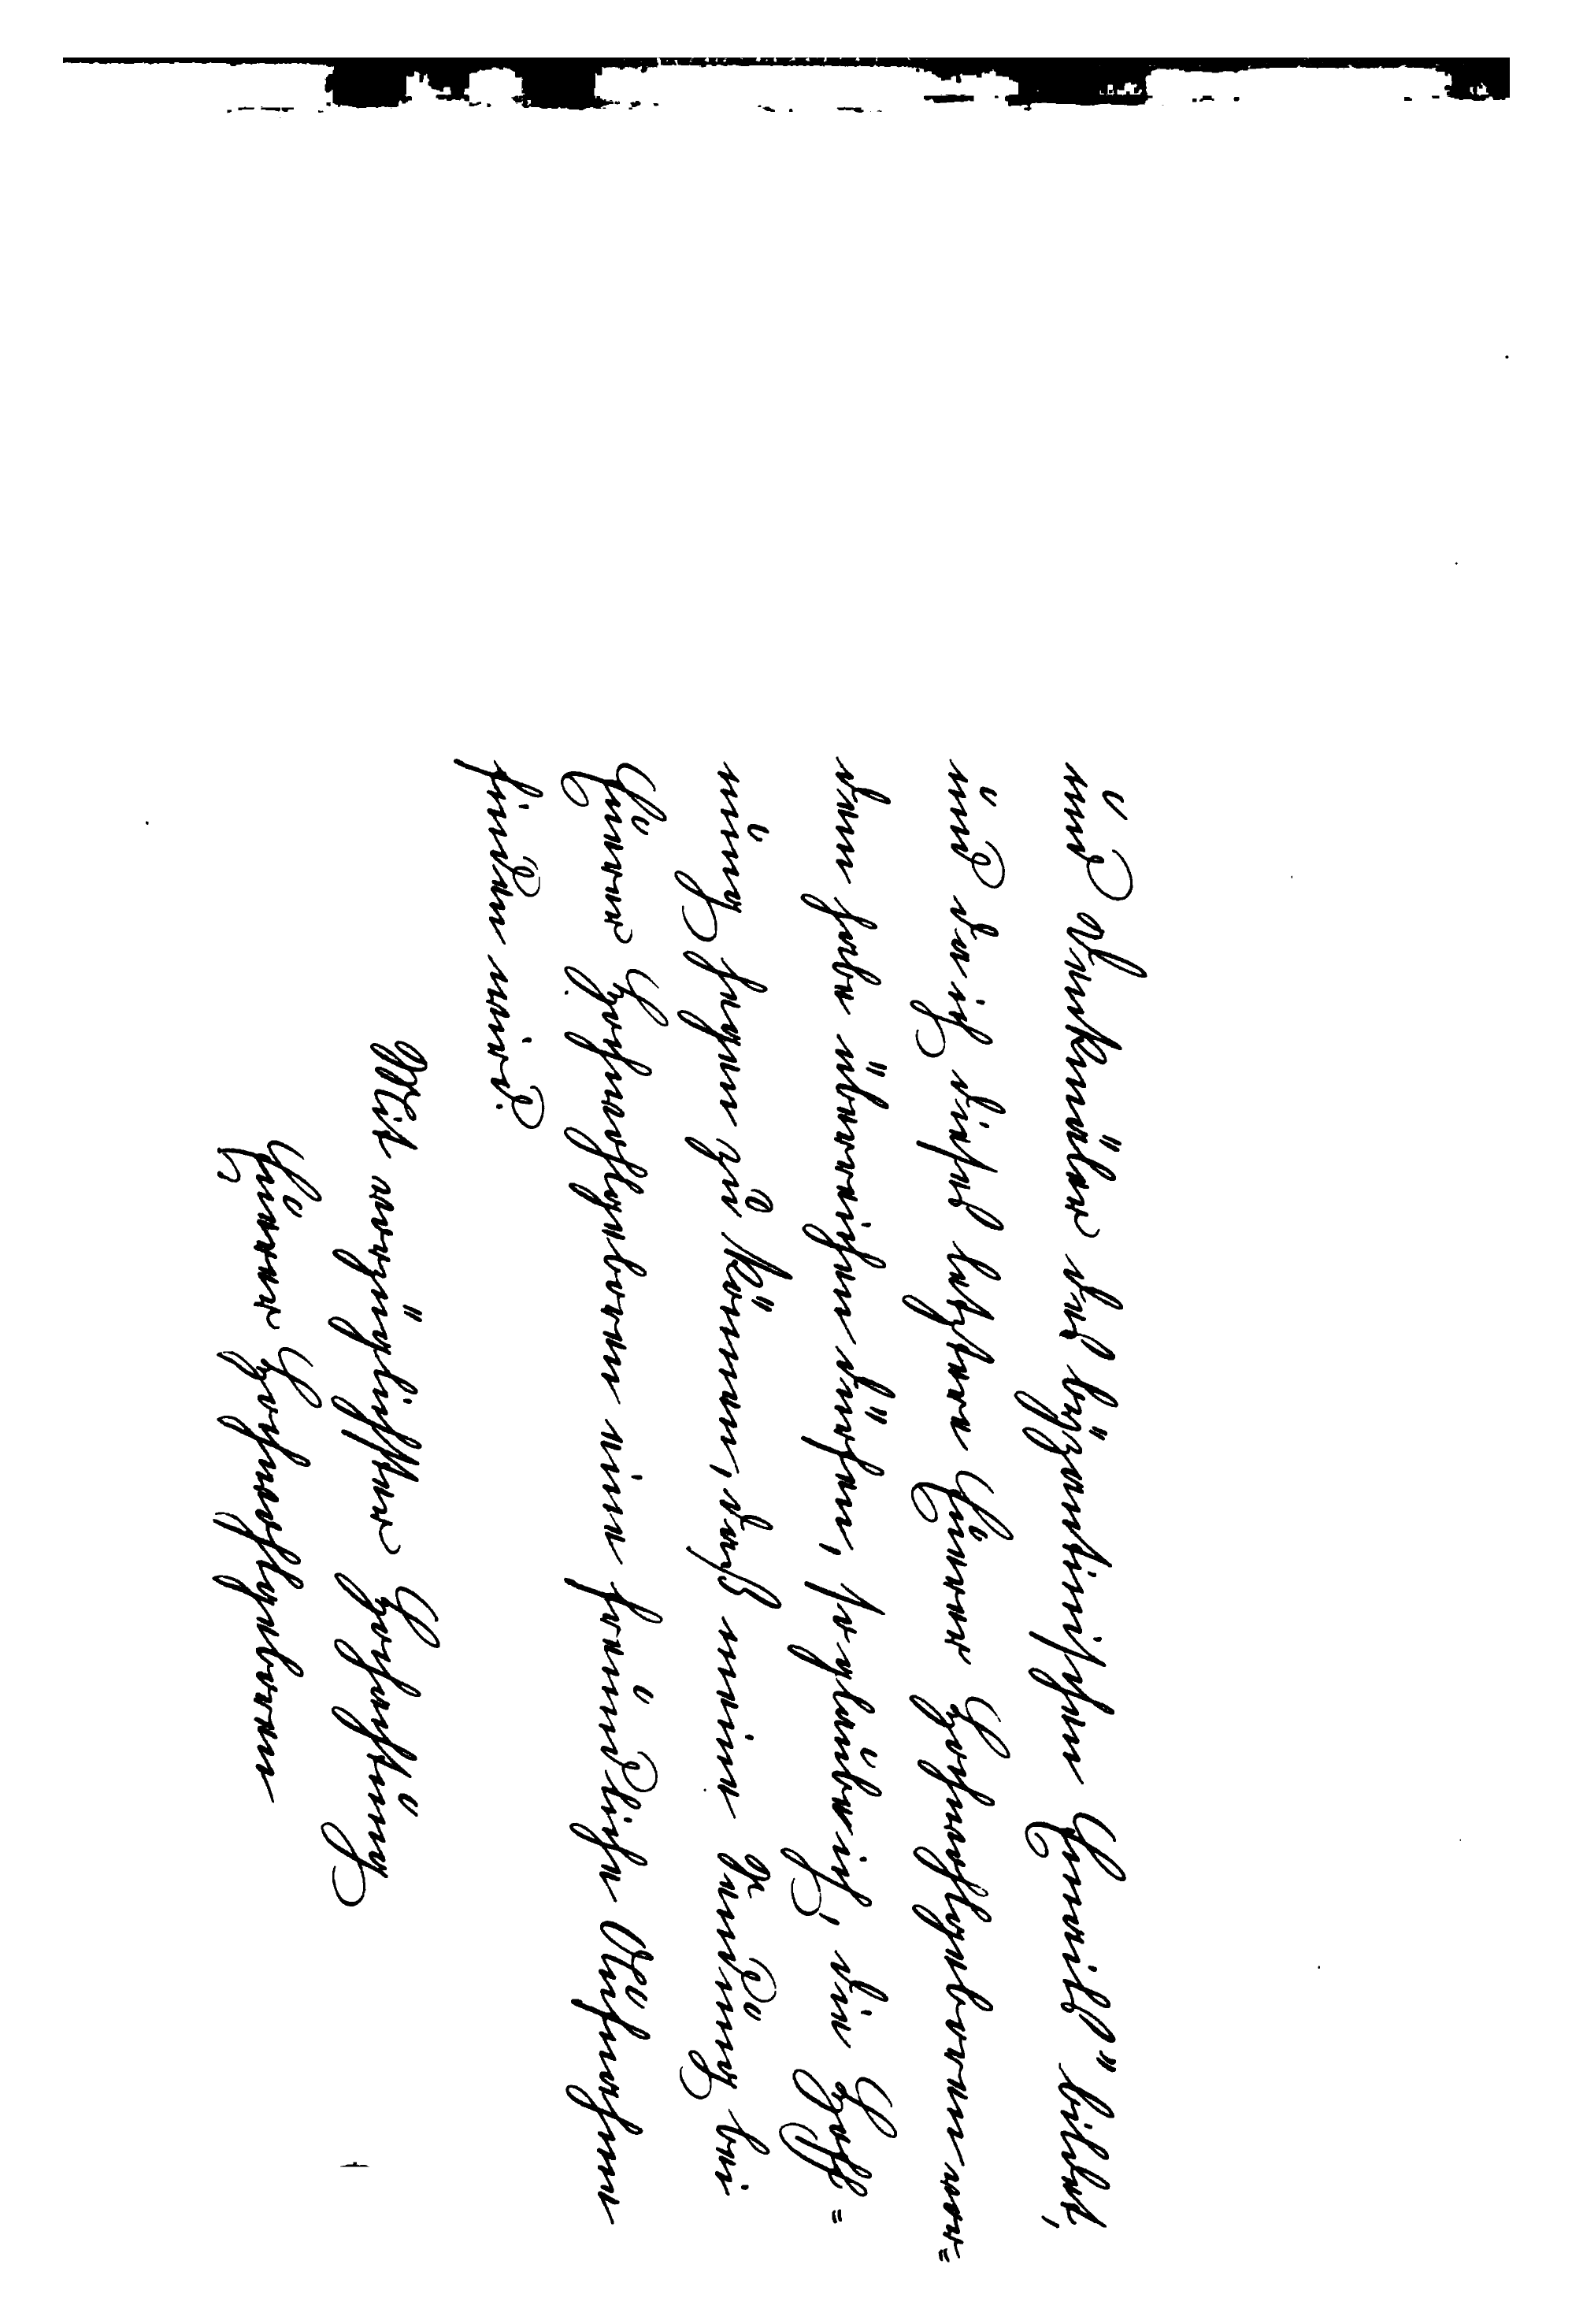 und Denkmäler des byzantinischen Emails" bildet,
und da ich dieses letztere Euerer Hochwohlgeboren wer=
den habe überreichen dürfen, so glaube ich, die Hoff=
nung hegen zu können, daß meine Sendung bei
Euerer Hochwohlgeboren eine freundliche Aufnahme
finden wird.
Mit vorzüglichster Hochachtung
Euerer Hochwohlgeboren